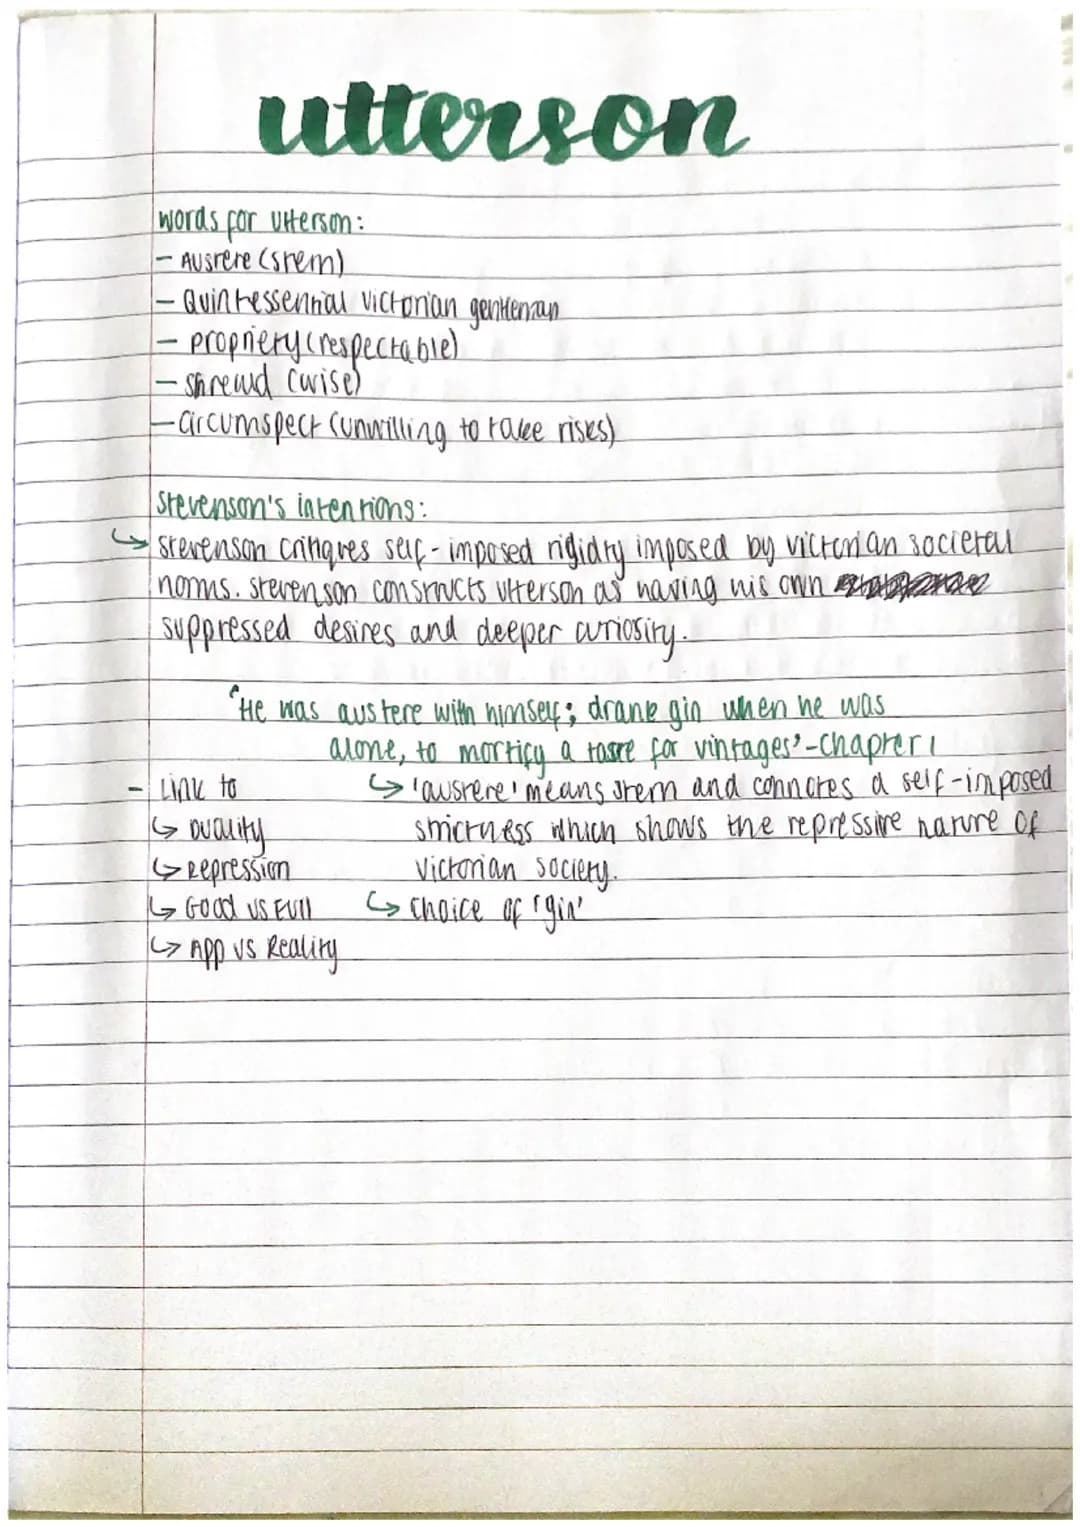 utterson
words for Utterson:
- Austere (stern)
- Quintessential Victorian gentleman
- propriety (respectable)
- shrewd (wise)
- Circumspect (unwilling to take risks)
Stevenson's intentions:
↳ Stevenson critiques self-imposed rigidity imposed by victorian societal
norms. Stevenson constructs Utterson as having his own
suppressed desires and deeper curiosity.
"He was austere with himself; drank gin when he was
alone, to mortify a taste for vintages'-Chapter 1
- Link to
↳ Duality
↳ Repression
↳ Good VS Evil
↳ App VS Reality
↳ 'austere' means stern and connotes a self-imposed
strictness which shows the repressive nature of
Victorian society.
↳ Choice of 'gin'